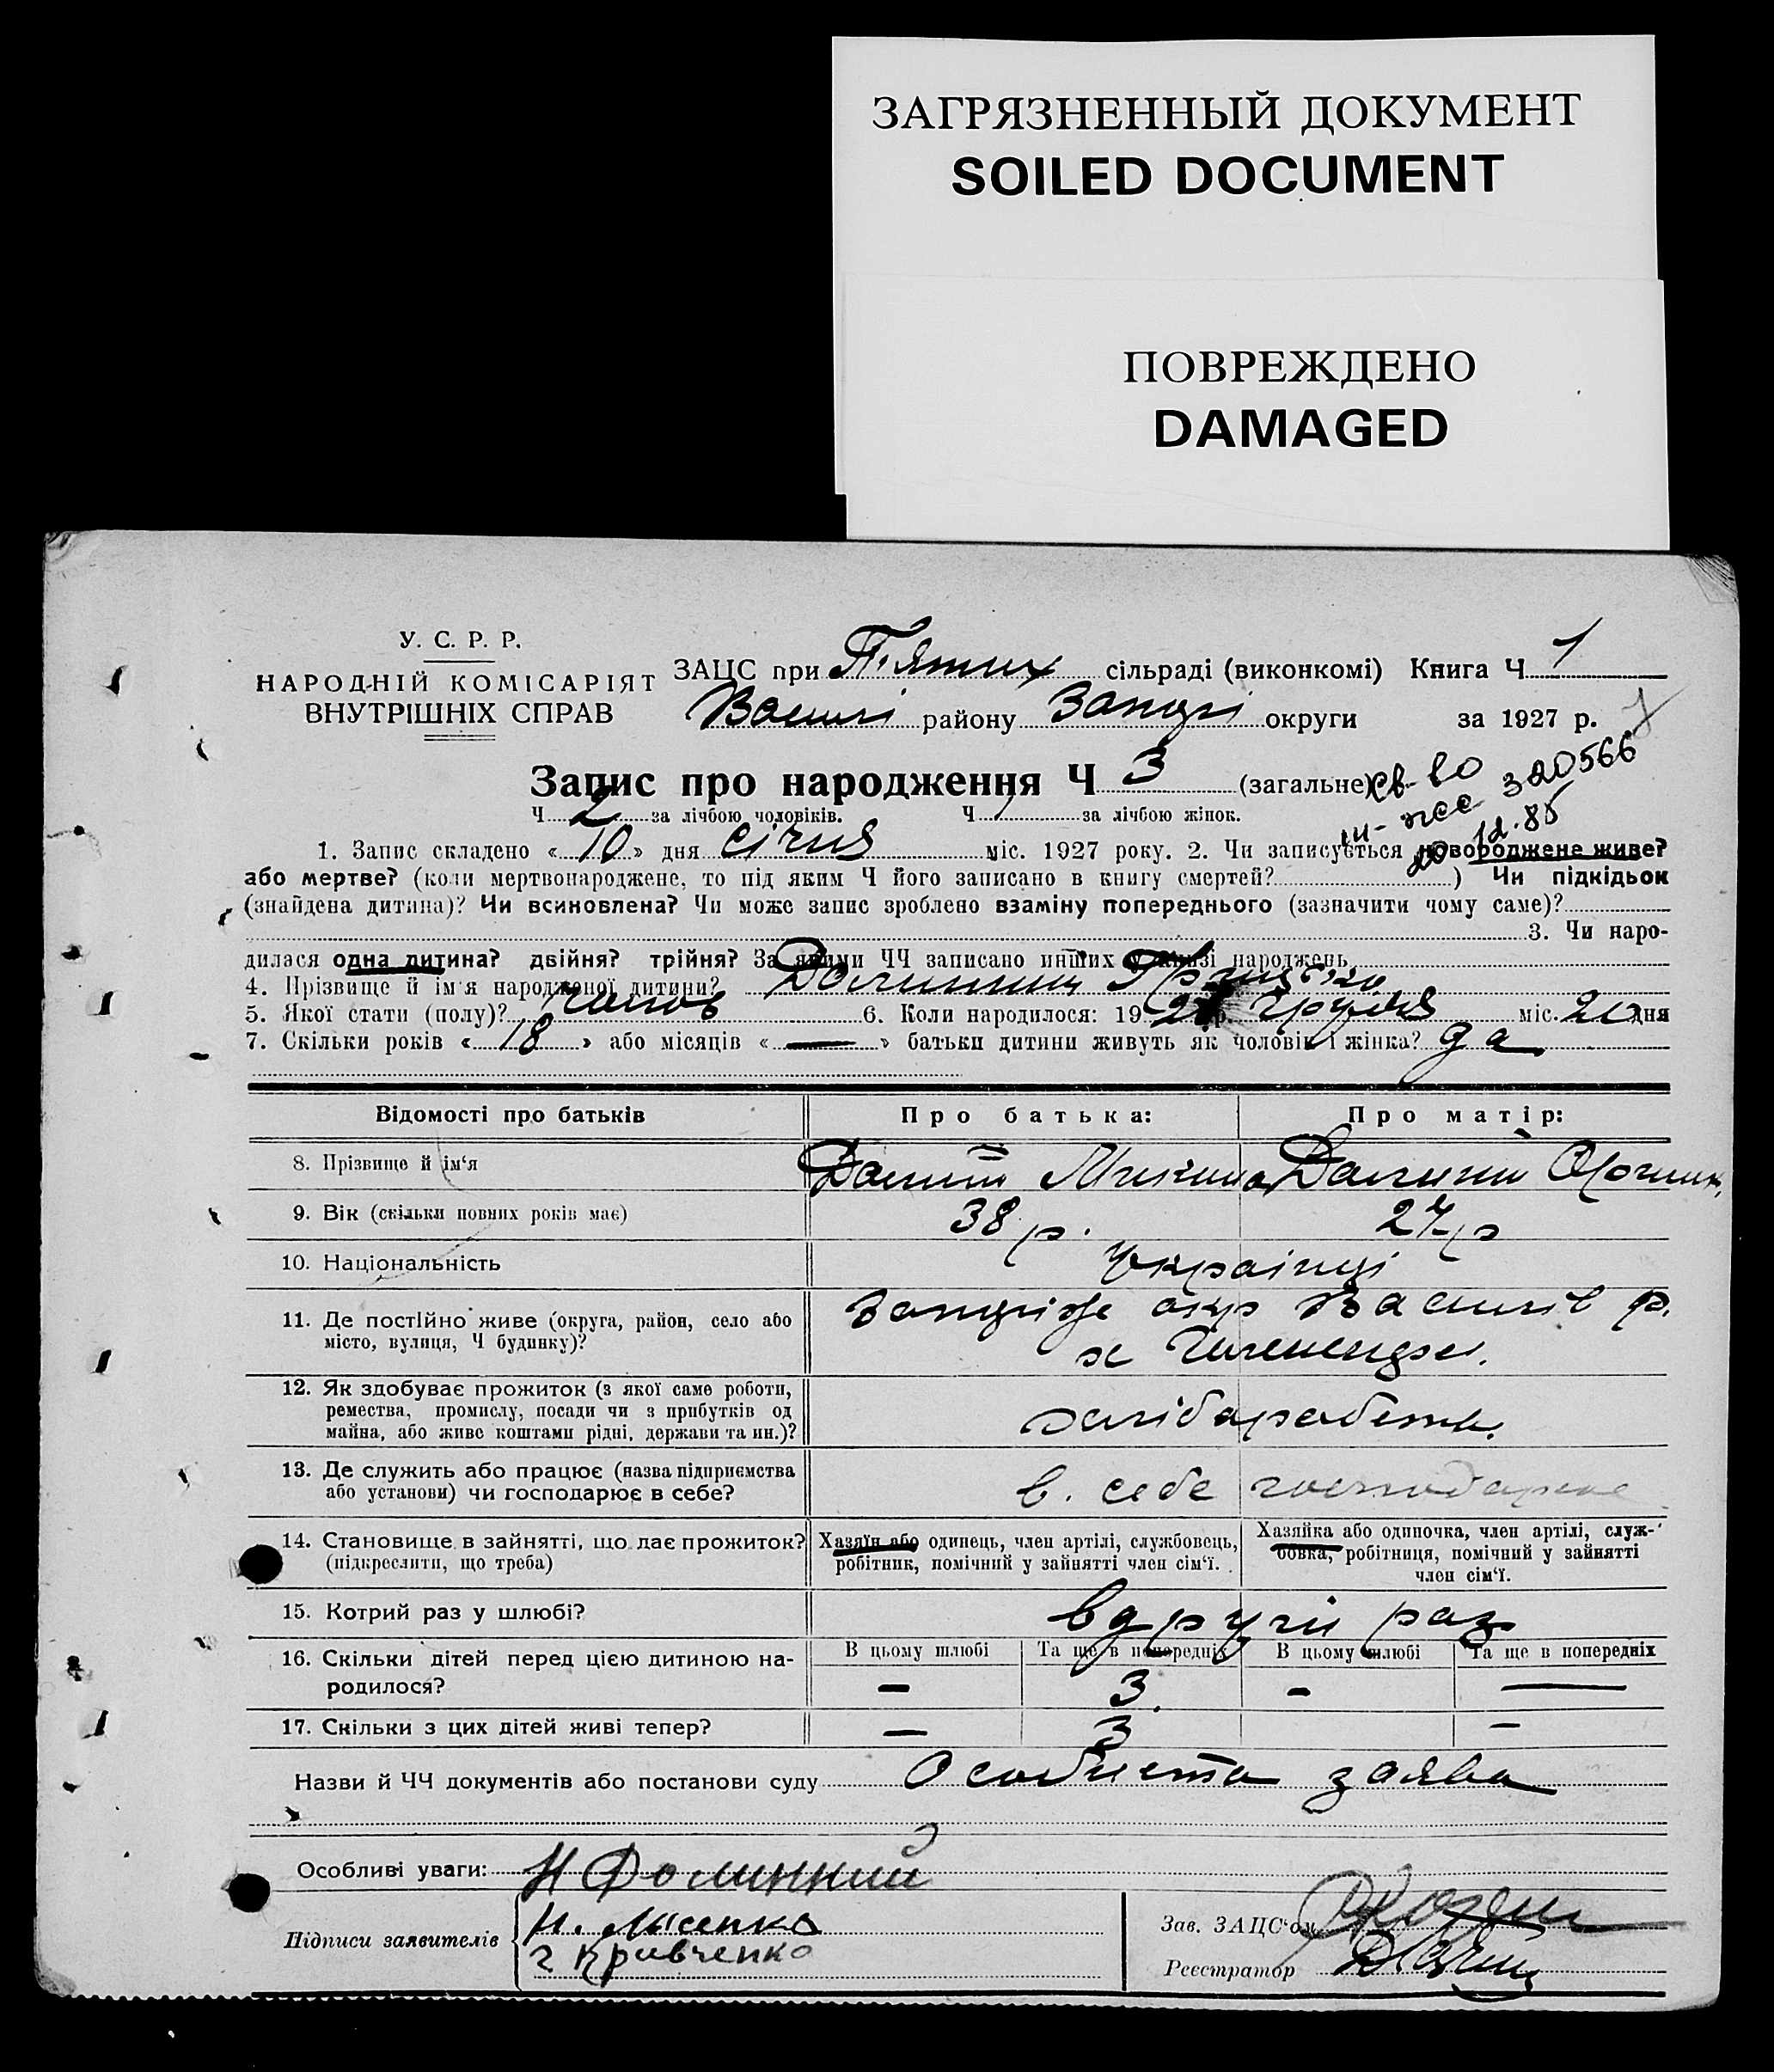 ЗАГРЯЗНЕННЫЙ ДОКУМЕНТ
SOILED DOCUMENT
ПОВРЕЖДЕНО
DAMAGED
У. С. Р. Р.
НАРОДНІЙ КОМІСАРІЯТ
ВНУТРІШНІХ СПРАВ
ЗАЦС при П'ятих сільраді (виконкомі) Книга Ч 1
Василі району Запорі округи за 1927 р.
Запис про народження Ч 3 (загальне)
св-во 320566
12.85
Ч 2 за лічбою чоловіків. Ч 1 за лічбою жінок.
1. Запис складено « 10 » дня січня міс. 1927 року. 2. Чи записується новороджене живе?
або мертве? (коли мертвонароджене, то під яким Ч його записано в книгу смертей? ) Чи підкідьок
(знайдена дитина)? Чи всиновлена? Чи може запис зроблено взаміну попереднього (зазначити чому саме)?
3. Чи наро-
дилася одна дитина? двійня? трійня? За якими ЧЧ записано инших у книзі народжень
4. Прізвище й ім'я народженої дитини?
5. Якої стати (полу)? чолов 6. Коли народилося: 19 р. грудня міс. 20 дня
7. Скільки років « 18 » або місяців « — » батьки дитини живуть як чоловік і жінка? да
Відомості про батьків Про батька: Про матір:
8. Прізвище й ім'я
9. Вік (скільки повних років має) 38 р. 27 р
10. Національність Українці
11. Де постійно живе (округа, район, село або окр Василів р.
місто, вулиця, Ч будинку)?
12. Як здобуває прожиток (з якої саме роботи,
ремества, промислу, посади чи з прибутків од
майна, або живе коштами рідні, держави та ин.)?
13. Де служить або працює (назва підприємства
або установи) чи господарює в себе? в. себе господарює
14. Становище в зайнятті, що дає прожиток?
(підкреслити, що треба)
Хазяїн або одинець, член артілі, службовець,
робітник, помічний у зайнятті член сім'ї.
Хазяйка або одиночка, член артілі, служ-
бовка, робітниця, помічний у зайнятті
член сім'ї.
15. Котрий раз у шлюбі? вдругий раз
В цьому шлюбі Та ще в попередніх В цьому шлюбі Та ще в попередніх
16. Скільки дітей перед цією дитиною на-
родилося? — 3. — —
17. Скільки з цих дітей живі тепер? — 3 —
Назви й ЧЧ документів або постанови суду Особиста заява
Особливі уваги: Н Долинний
Підписи заявителів Н. Лисенко
г Кравченко
Зав. ЗАЦС'ом
Реєстратор